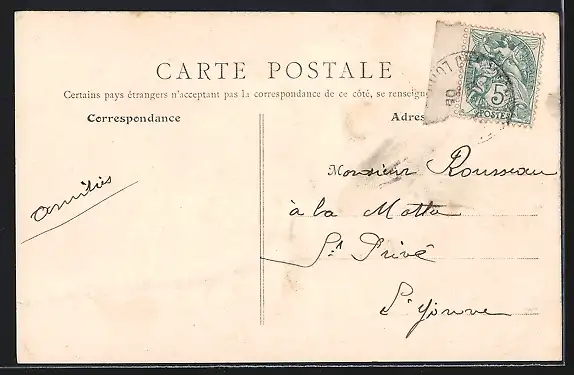 CARTE POSTALE
Certains pays étrangers n'acceptant pas la correspondance de ce côté, se renseign
Correspondance
Adres
5
POSTES
amitiés
Monsieur Rousseau
à la Motte
St Privé
Yonne